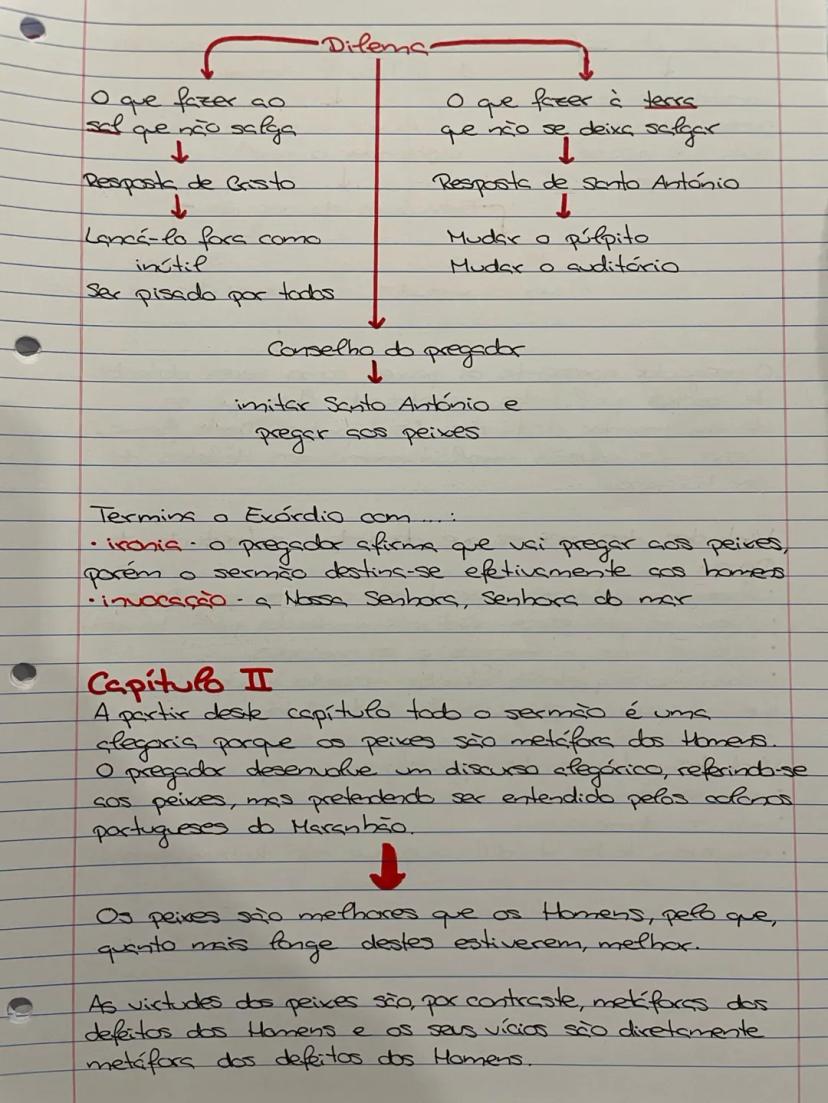 Dilema
O que fazer ao
sal que não salga
Resposta de Cristo
Lançá-lo fora como
inútil
Ser pisado por todos
O que fazer à terra
que não se deixa salgar
Resposta de Santo António
Mudar o púlpito
Mudar o auditório
Conselho do pregador
imitar Santo António e
pregar aos peixes
Termina o Exórdio com...:
· ironia - o pregador afirma que vai pregar aos peixes,
porém o sermão destina-se efetivamente aos homens
· invocação - a Nossa Senhora, Senhora do mar
Capítulo II
A partir deste capítulo todo o sermão é uma
alegoria porque os peixes são metáfora dos Homens.
O pregador desenvolve um discurso alegórico, referindo-se
aos peixes, mas pretendendo ser entendido pelos colonos
portugueses do Maranhão.
Os peixes são melhores que os Homens, pelo que,
quanto mais longe destes estiverem, melhor.
As virtudes dos peixes são, por contraste, metáforas dos
defeitos dos Homens e os seus vícios são diretamente
metáfora dos defeitos dos Homens.